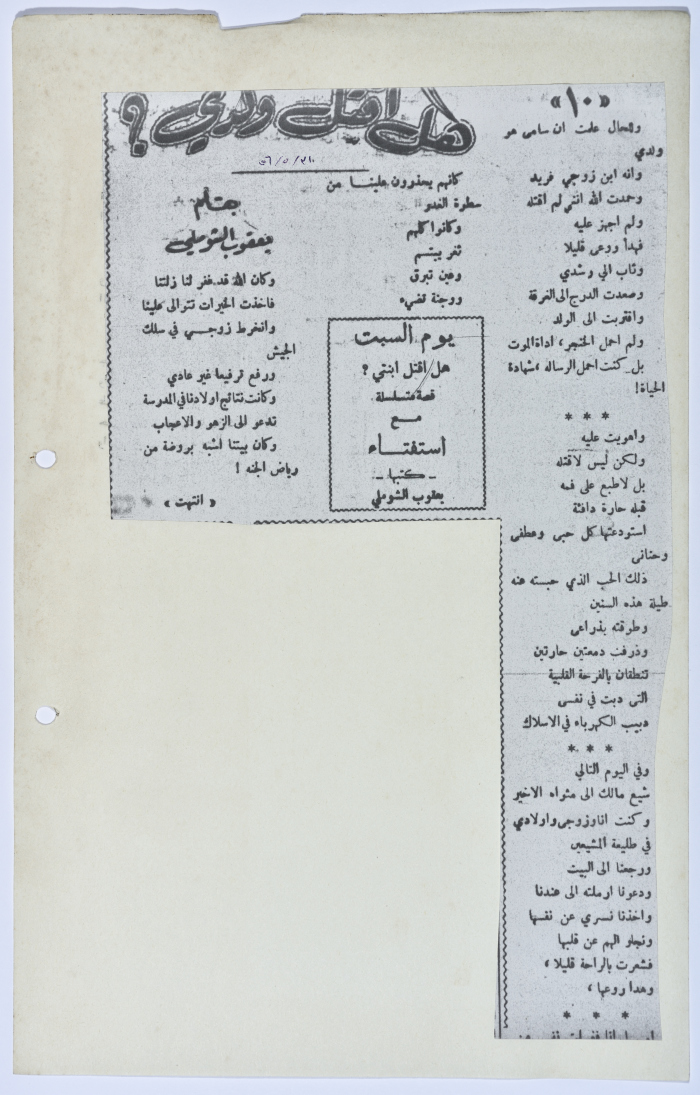 هل اقتل ولدي ؟
«١٠»
وللحال علمت ان سامي هو
ولدي
وانه ابن زوجي فريد
وحمدت الله انني لم اقتله
ولم اجهز عليه
فهدأ روعى قليلا
وثاب الي رشدي
وصعدت الدرج الى الغرفة
واقتربت الى الولد
ولم احمل الخنجر، اداة الموت
بل كنت احمل الرساله ، شهادة
الحياة!
* * *
واهويت عليه
ولكن ليس لاقتله
بل لاطبع على فمه
قبله حارة دافئة
استودعتها كل حبى وعطفى
وحنانى
ذلك الحب الذي حبسته عنه
طيلة هذه السنين
وطوقته بذراعى
وذرفت دمعتين حارتين
تنطقان بالفرحة القلبية
التى دبت في نفسى
دبيب الكهرباء في الاسلاك
* * *
وفي اليوم التالي
شيع مالك الى مثواه الاخير
وكنت انا وزوجى واولادي
في طليعة المشيعين
ورجعنا الى البيت
ودعونا ارملته الى عندنا
واخذنا نسري عن نفسها
ونجلو الهم عن قلبها
فشعرت بالراحة قليلا ،
وهدا روعها ،
* * *
كانهم يحذرون علينا من
سطوة الغدو
وكانوا كلهم
ثغر يبتسم
وعين تبرق
ووجنة تضيء
يوم السبت
هل اقتل ابنتي ؟
قصة متسلسلة
مع
استفتاء
- كتبها -
يعقوب الشوملي
بقلم
يعقوب الشوملي
وكان الله قد غفر لنا زلتنا
فاخذت الخيرات تتر الى علينا
وانخرط زوجي في سلك
الجيش
ورفع ترفيعا غير عادي
وكانت نتائج اولادنا في المدرسة
تدعو الى الزهو والاعجاب
وكان بيتنا اشبه بروضة من
رياض الجنه !
« انتهت »